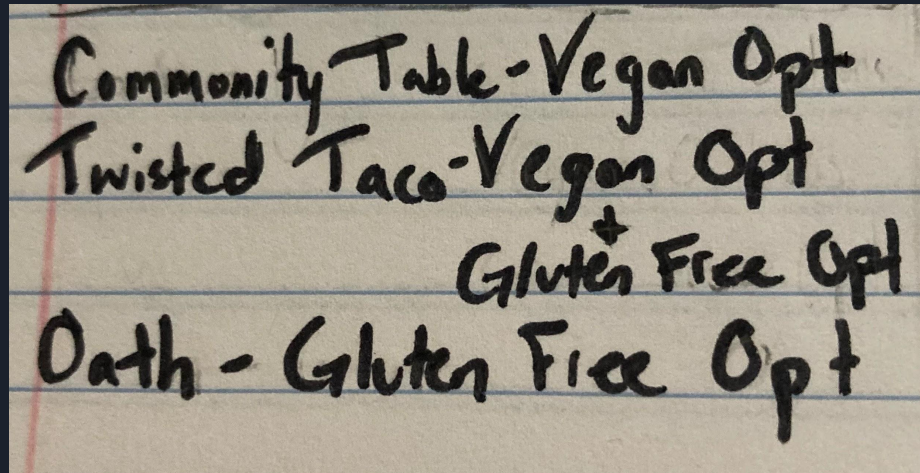 Community Table-Vegan Opt.
Twisted Taco-Vegan Opt
+
Gluten Free Opt
Oath - Gluten Free Opt